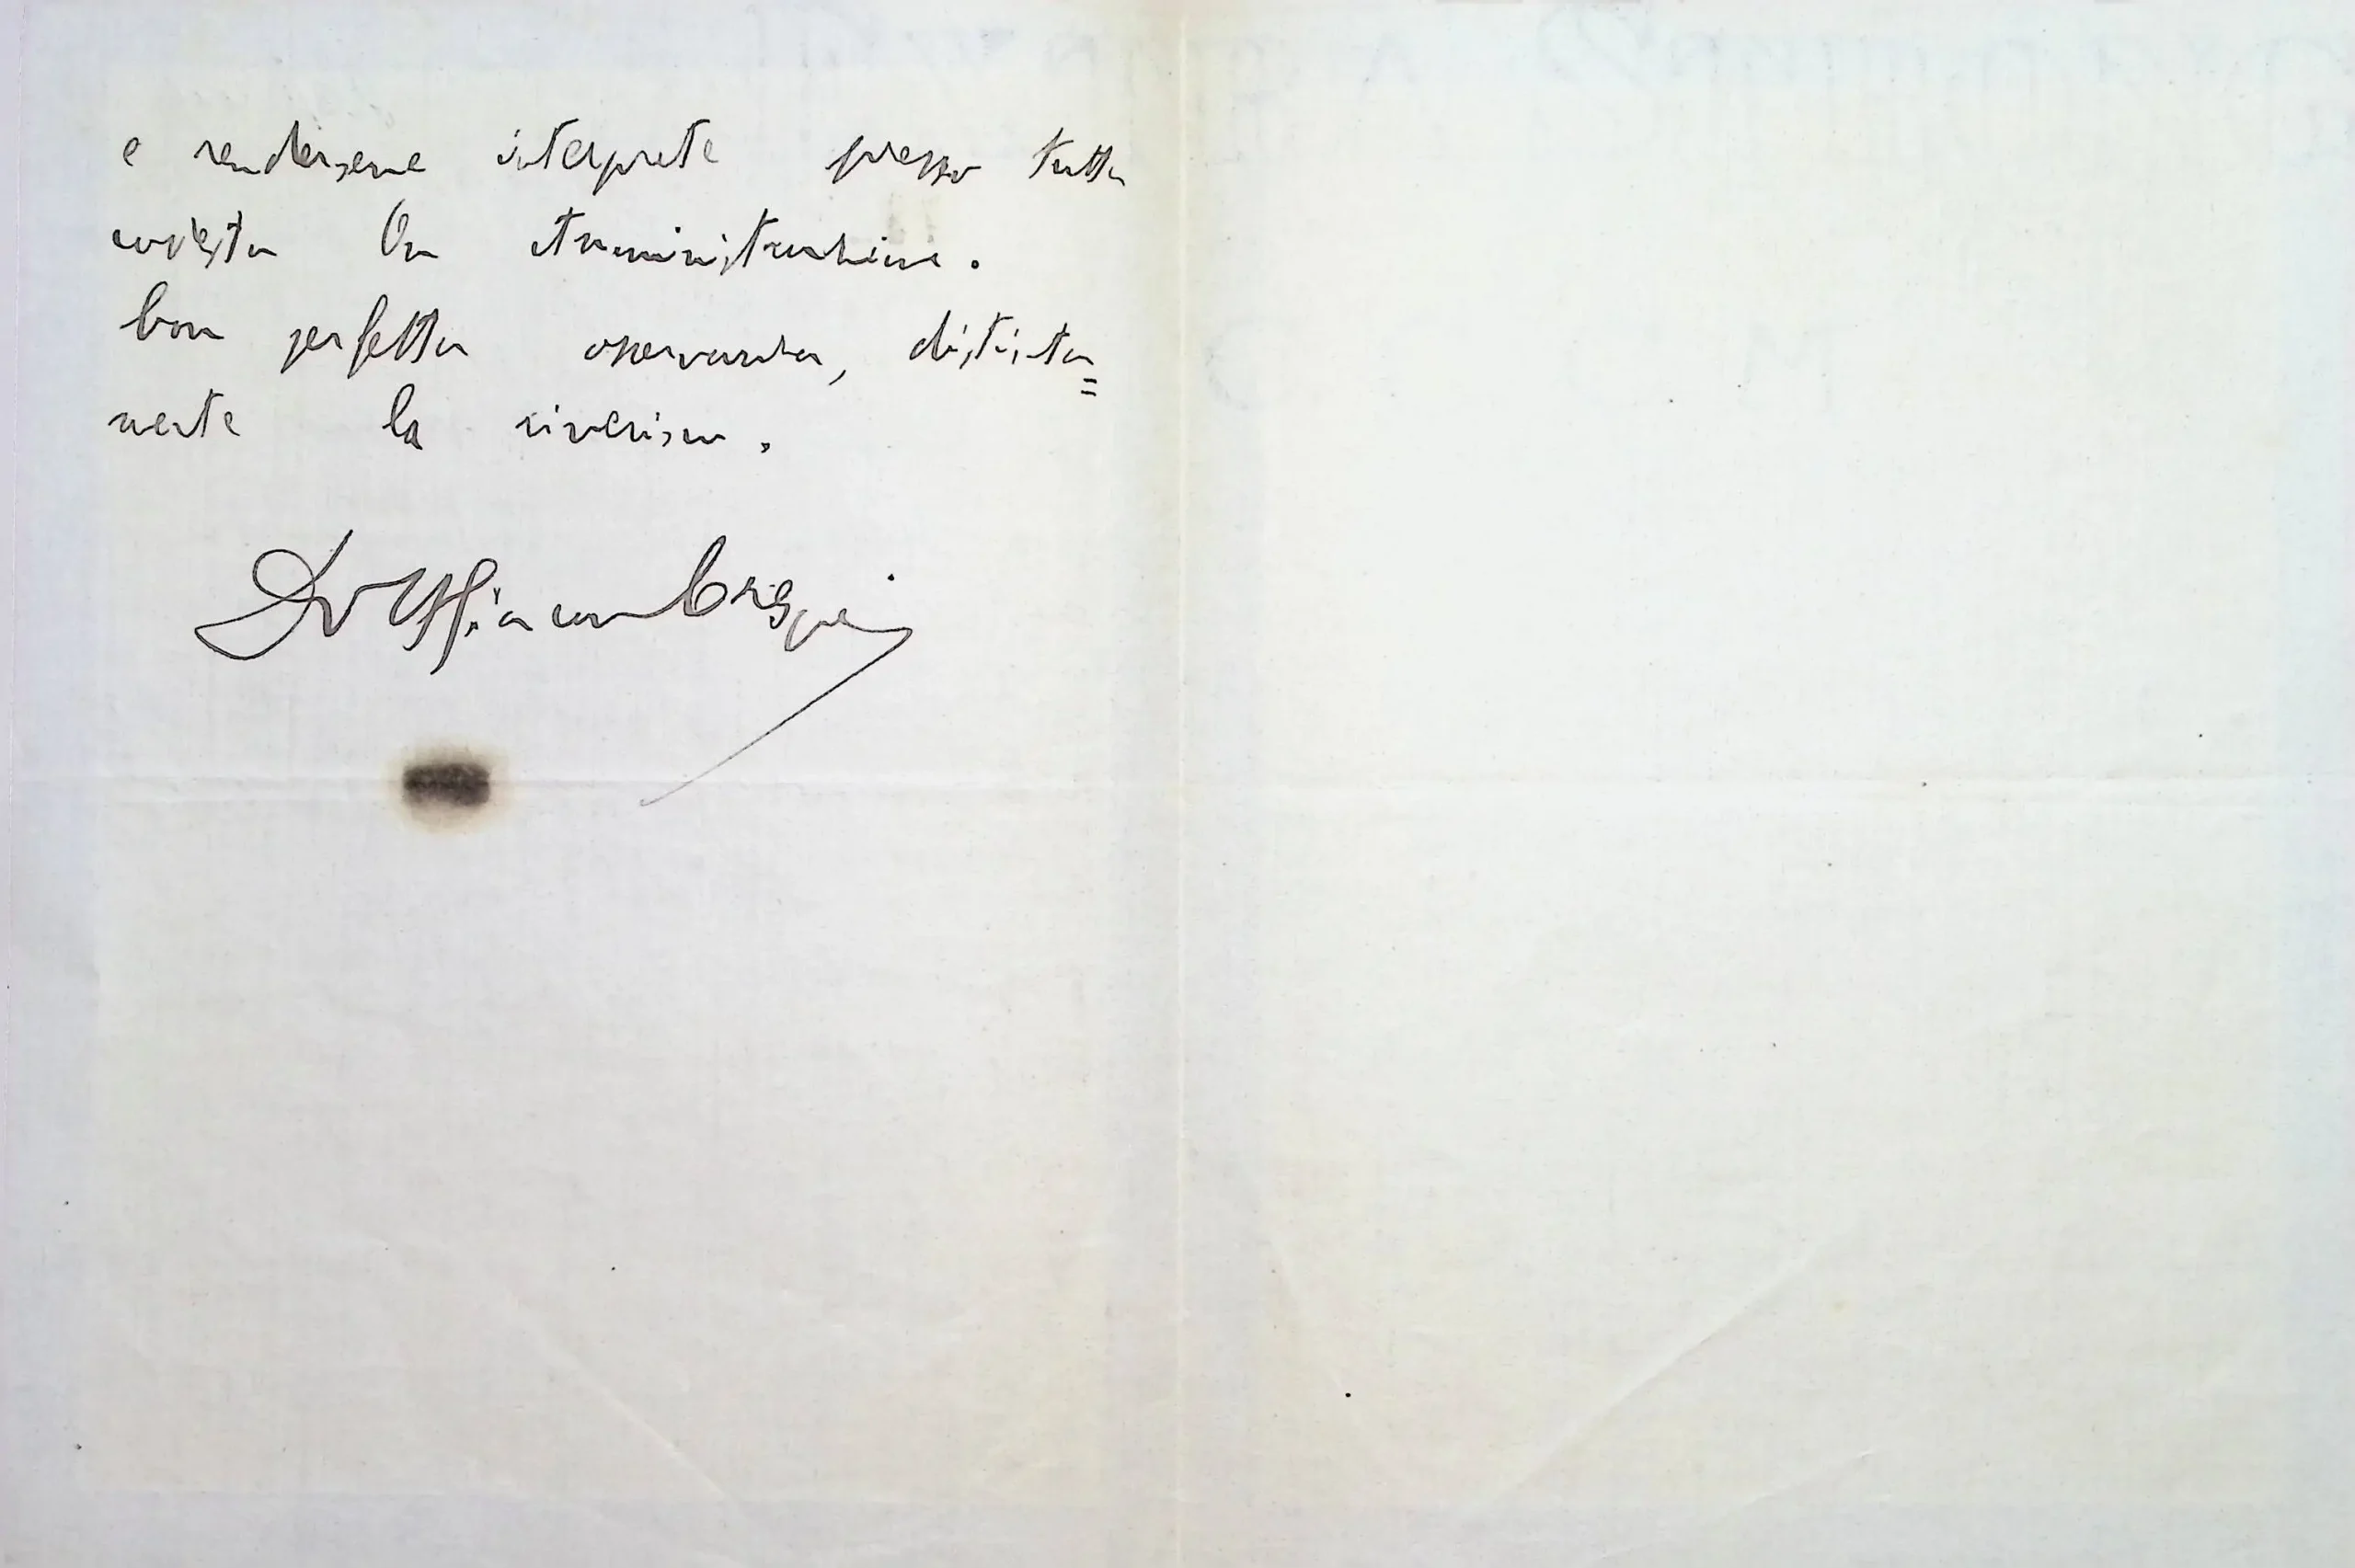 e rendersene interprete presso tutta
codesta On Amministrazione.
Con perfetta osservanza, distinta=
mente la riverisco.
Crespi